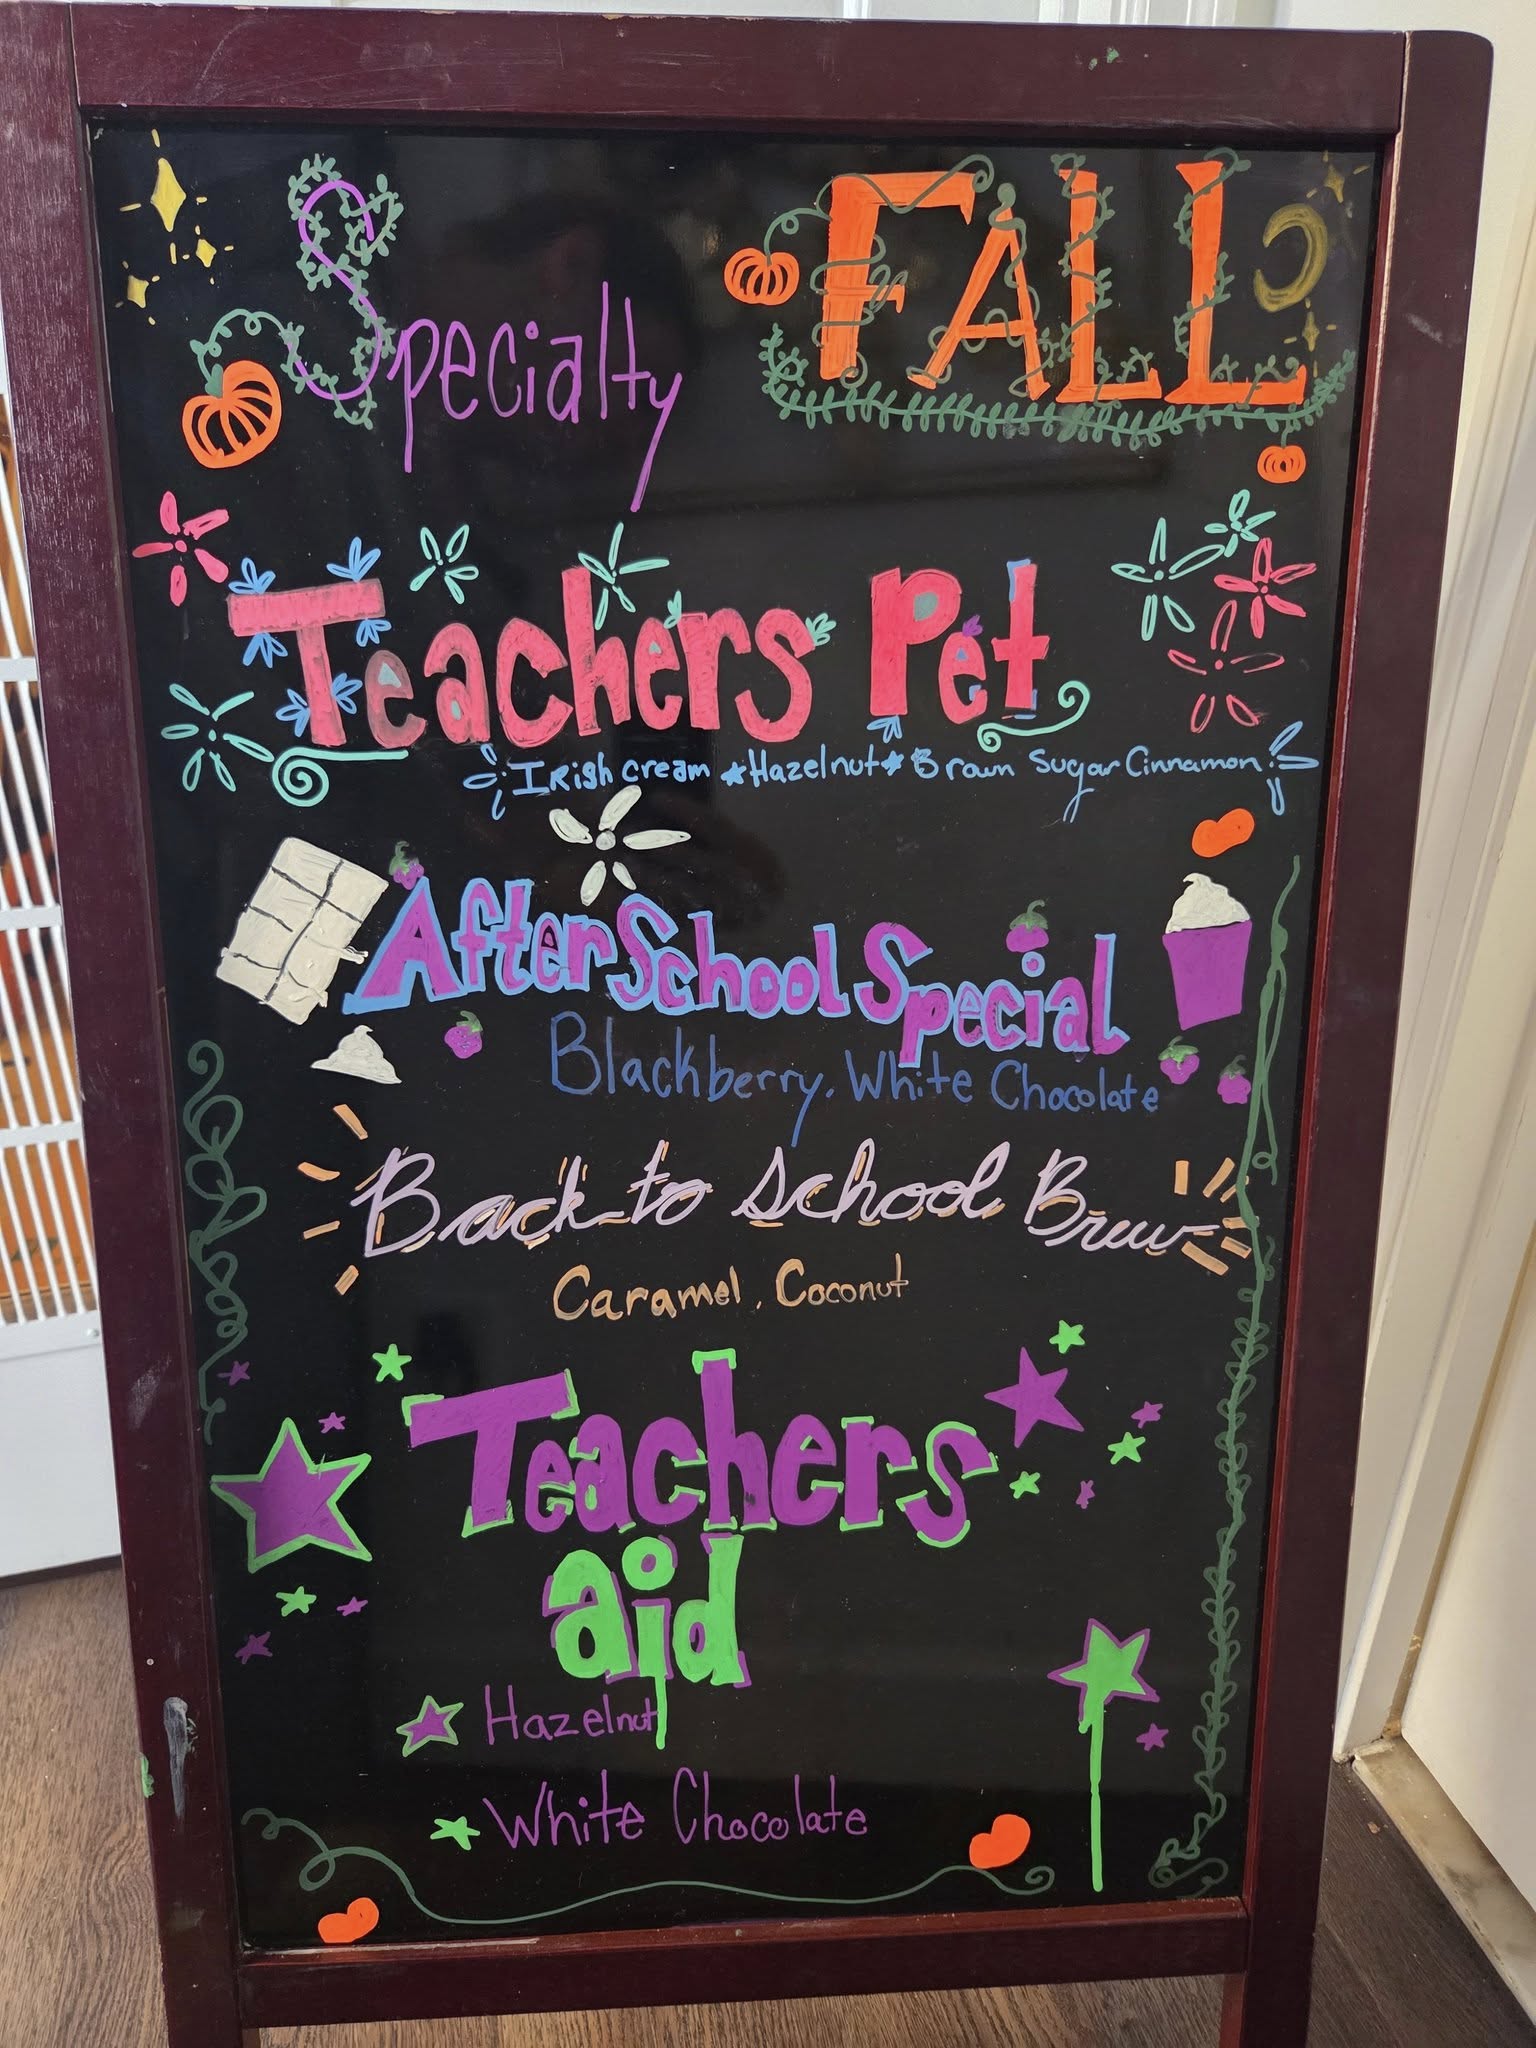 Specialty FALL
Teachers Pet
Irish cream ★ Hazelnut ★ Brown Sugar Cinnamon
After School Special
Blackberry, White Chocolate
Back to School Brew
Caramel, Coconut
Teachers
aid
Hazelnut
White Chocolate